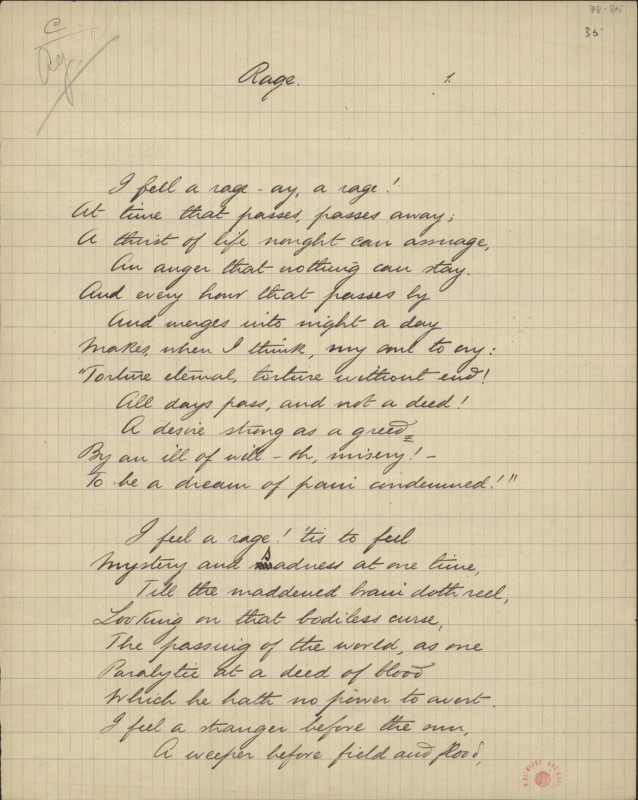 78-35
35
C
Rage. 1.
I feel a rage - ay, a rage!
At time that passes, passes away;
A thirst of life nought can assuage,
An anger that nothing can stay.
And every hour that passes by
And merges into night a day
Makes, when I think, my soul to cry:
"Torture eternal, torture without end!
All days pass, and not a deed!
A desire strong as a greed
By an ill of will - oh, misery! -
To be a dream of pain condemned!"
I feel a rage! 'tis to feel
Mystery and sadness at one time,
Till the maddened brain doth reel,
Looking on that bodiless curse,
The passing of the world, as one
Paralytic at a deed of blood
Which he hath no power to avert.
I feel a stranger before the sun,
A weeper before field and flood,